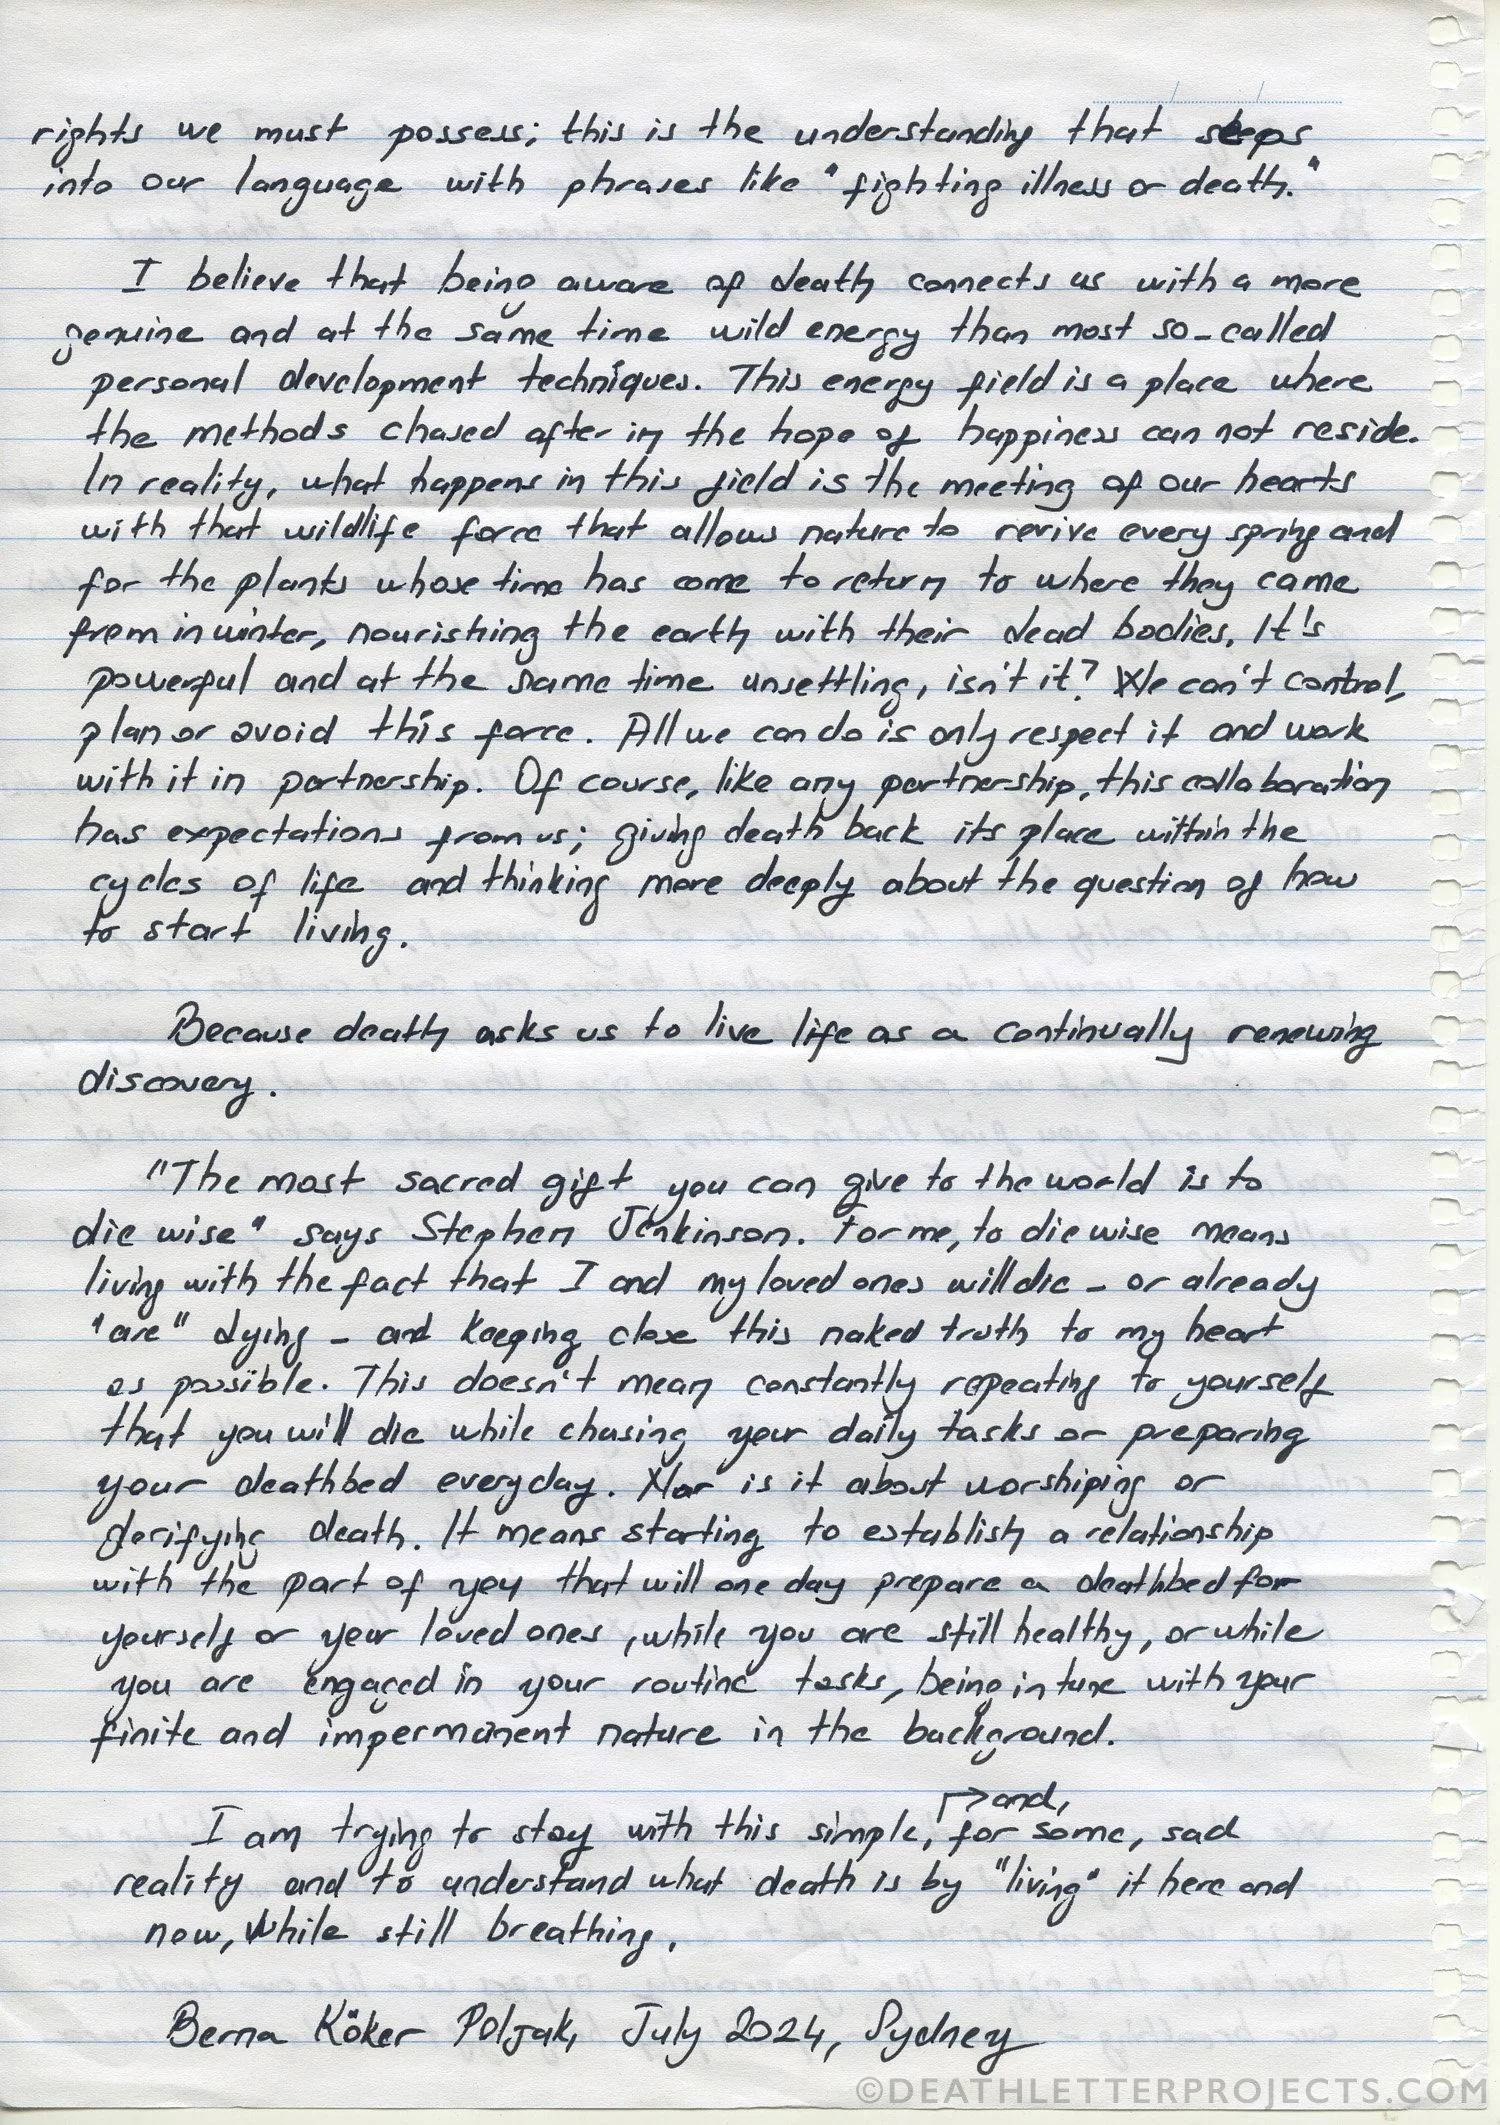 rights we must possess; this is the understanding that steps
into our language with phrases like "fighting illness or death."
I believe that being aware of death connects us with a more
genuine and at the same time wild energy than most so-called
personal development techniques. This energy field is a place where
the methods chased after in the hope of happiness can not reside.
In reality, what happens in this field is the meeting of our hearts
with that wildlife force that allows nature to revive every spring and
for the plants whose time has come to return to where they came
from in winter, nourishing the earth with their dead bodies. It's
powerful and at the same time unsettling, isn't it? We can't control,
plan or avoid this force. All we can do is only respect it and work
with it in partnership. Of course, like any partnership, this collaboration
has expectations from us; giving death back its place within the
cycles of life and thinking more deeply about the question of how
to start living.
Because death asks us to live life as a continually renewing
discovery.
"The most sacred gift you can give to the world is to
die wise" says Stephen Jenkinson. For me, to die wise means
living with the fact that I and my loved ones will die - or already
"are" dying - and keeping close this naked truth to my heart
as possible. This doesn't mean constantly repeating to yourself
that you will die while chasing your daily tasks or preparing
your deathbed everyday. Nor is it about worshiping or
glorifying death. It means starting to establish a relationship
with the part of you that will one day prepare a deathbed for
yourself or your loved ones, while you are still healthy, or while
you are engaged in your routine tasks, being in tune with your
finite and impermanent nature in the background.
I am trying to stay with this simple, and, for some, sad
reality and to understand what death is by "living" it here and
now, while still breathing.
Berna Köker Poljak, July 2024, Sydney
©DEATHLETTERPROJECTS.COM